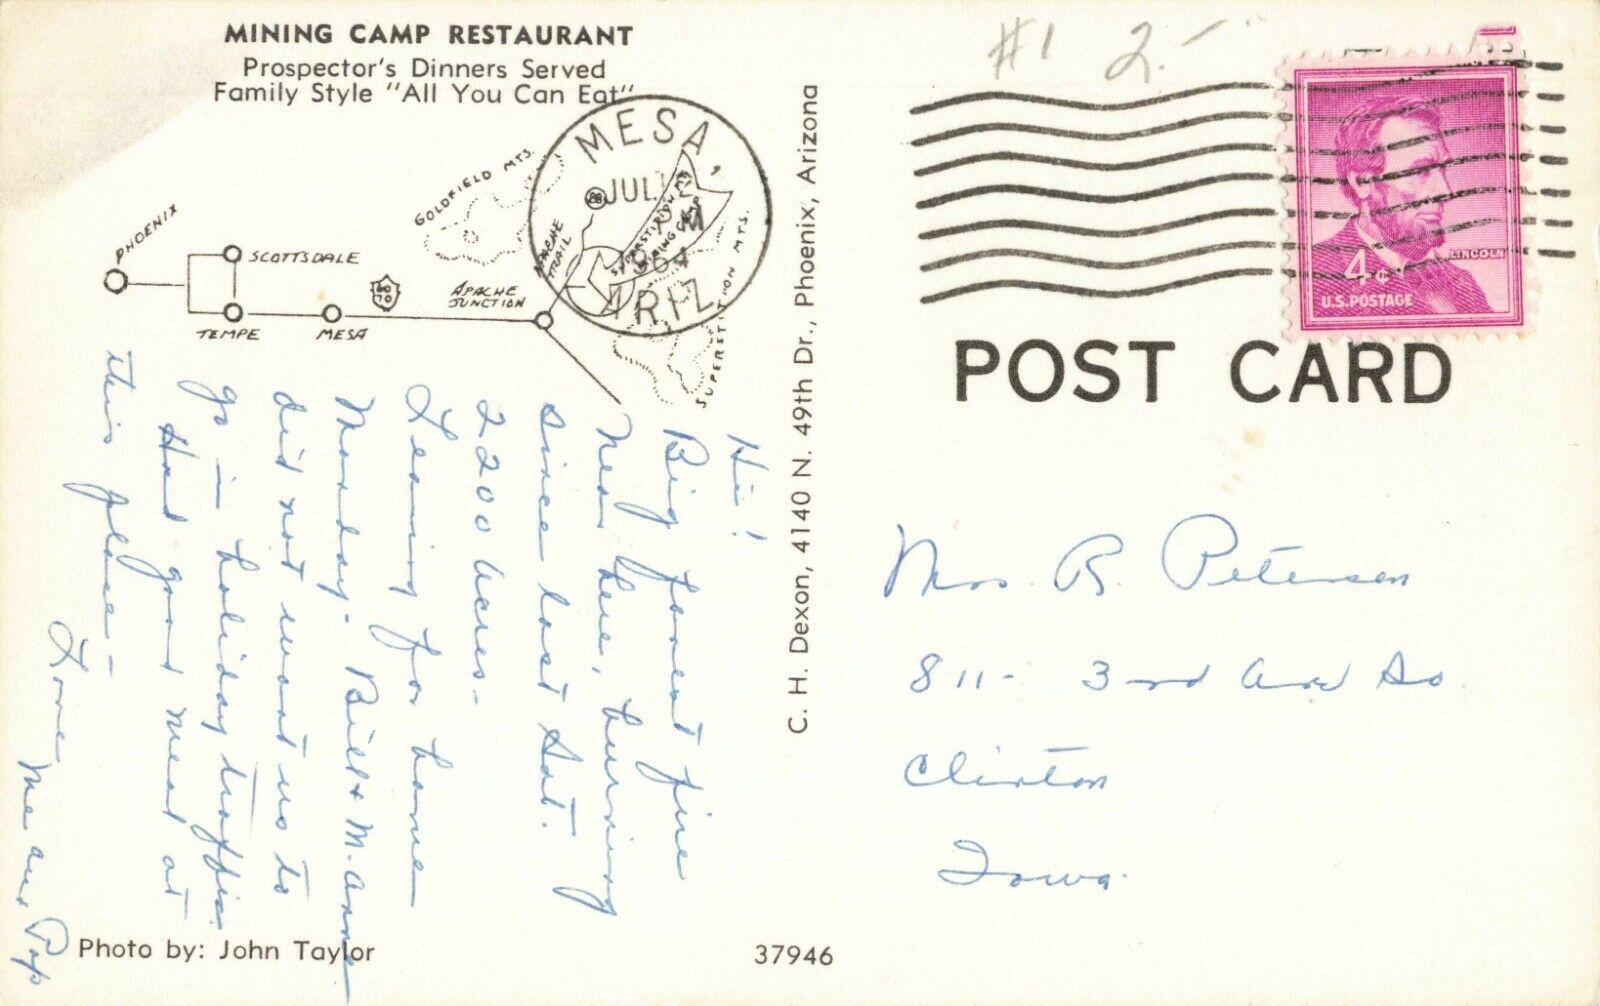 MINING CAMP RESTAURANT
Prospector's Dinners Served
Family Style "All You Can Eat"
PHOENIX
SCOTTSDALE
TEMPE
MESA
60
70
APACHE
JUNCTION
APACHE
TRAIL
GOLDFIELD MTS.
88
SUPERSTITION
MINING CAMP
SUPERSTITION MTS.
MESA,
JUL
M
1964
ARIZ.
Hi!
Big forest fire
near here, burning
since last Sat.
2200 acres.
Leaving for home
Monday. Bill & M. Anne
did not want us to
go in holiday traffic.
Had good meal at
this place -
Love, Me and Pop
Photo by: John Taylor
37946
C. H. Dexon, 4140 N. 49th Dr., Phoenix, Arizona
#1 2.-
LINCOLN
4¢
U.S. POSTAGE
POST CARD
Mrs. R. Petersen
811- 3rd Ave So
Clinton
Iowa.